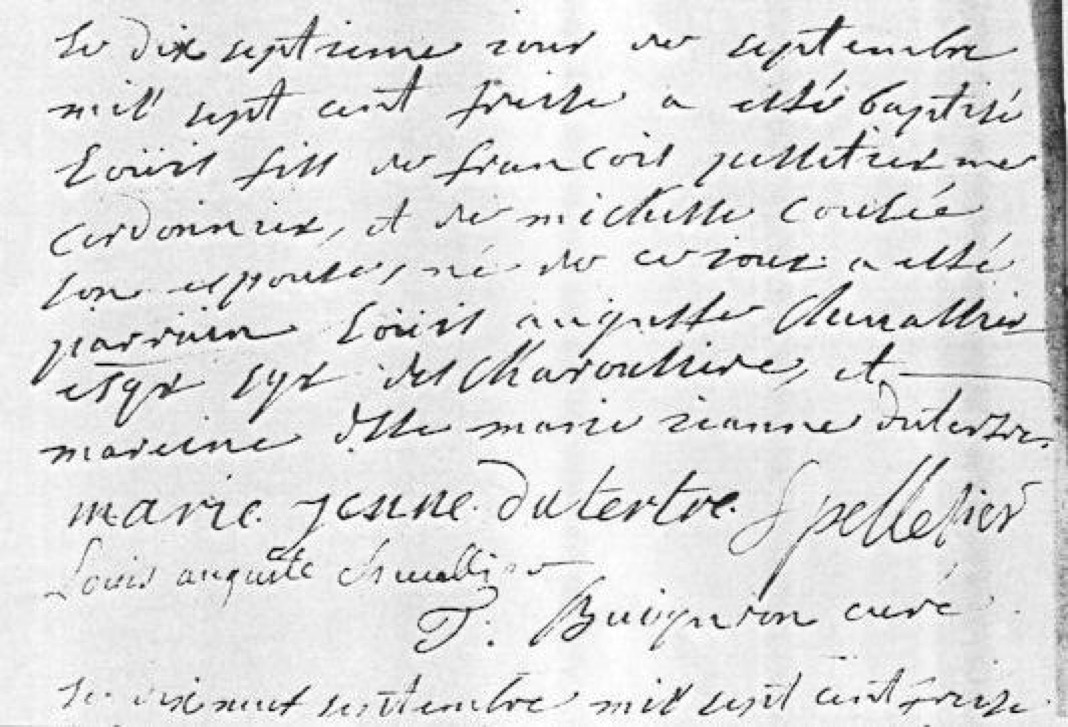 Le dix septieme jour de septembre
mil sept cent treise a esté baptisé
Loüis fils de françois pelletier me
cordonnier, et de michelle
son espouse, né de ce jour a esté
parrain Loüis auguste Chevallier
esqr syr des, et
mareine dlle marie jeanne dutertre.
marie jenne dutertre fpelletier
Louis auguste Chevallier
curé
Le dix neuf septembre mil sept cent treize